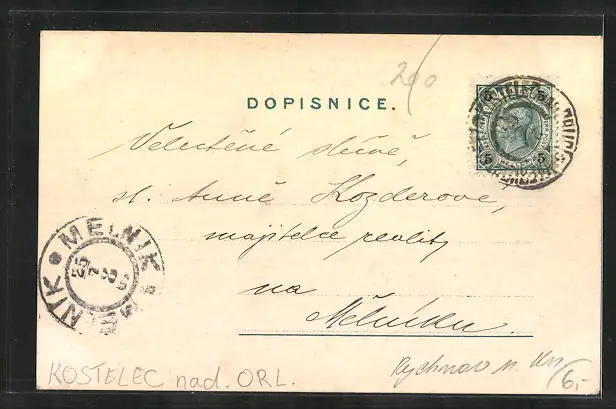 200
DOPISNICE.
Velectěné slečně,
sl. Anně Kozderove,
majitelce reality
na
Mělníku.
5 5
MELNIK
MĚLNÍK
25
KOSTELEC nad. ORL.
Rychnov n. Kn.
6,-